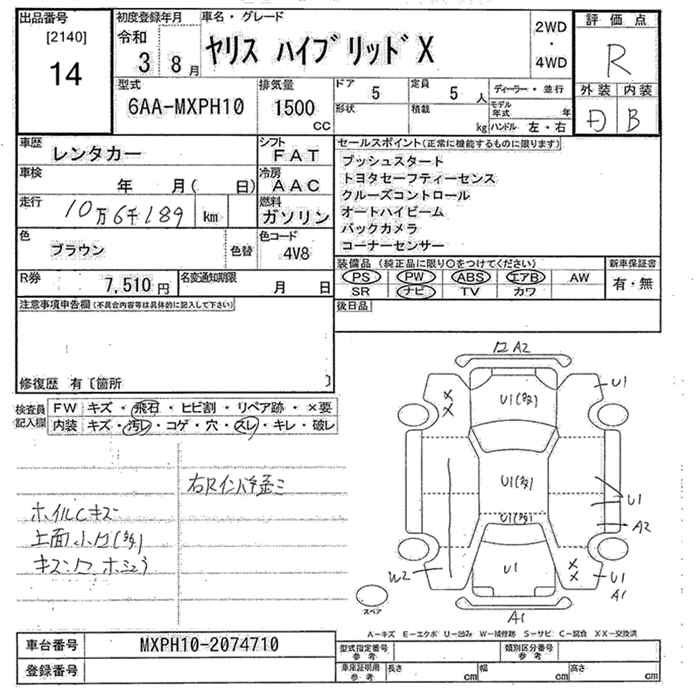 出品番号
[2140]
14
初度登録年月
令和
3
8月
車名・グレード
ヤリス ハイブリッド X
2WD
・
4WD
評価点
R
外装 内装
D B
型式
6AA-MXPH10
排気量
1500
CC
ドア
5
定員
5 人
形状
積載
kg
ディーラー・並行
モデル年式
年
ハンドル 左・右
車歴
レンタカー
シフト
FAT
車検
年 月( 日)
冷房
AAC
走行
10万6千189
km
燃料
ガソリン
色
ブラウン
色替
色コード
4V8
R券
7,510 円
名変通知期限
月 日
セールスポイント(正常に機能するものに限ります)
プッシュスタート
トヨタセーフティーセンス
クルーズコントロール
オートハイビーム
バックカメラ
コーナーセンサー
装備品(純正品に限り○をつけてください)
PS PW ABS エアB AW
SR ナビ TV カワ
新車保証書
有・無
後日品
注意事項申告欄(不具合内容等は具体的に記入して下さい)
修復歴 有〔箇所 〕
検査員
記入欄
FW キズ・飛石・ヒビ割・リペア跡・×要
内装 キズ・汚レ・コゲ・穴・スレ・キレ・破レ
右Rインパネ歪ミ
ホイルCキズ
A2
U1
U1
U1
U1
U1
U1
A2
W2
U1
U1
A1
A1
スペア
A-キズ E-エクボ U-凹み W-補修跡 S-サビ C-腐食 XX-交換済
車台番号
MXPH10-2074710
登録番号
型式指定番号
参考
類別区分番号
参考
車庫証明用
参考
長さ
cm
幅
cm
高さ
cm